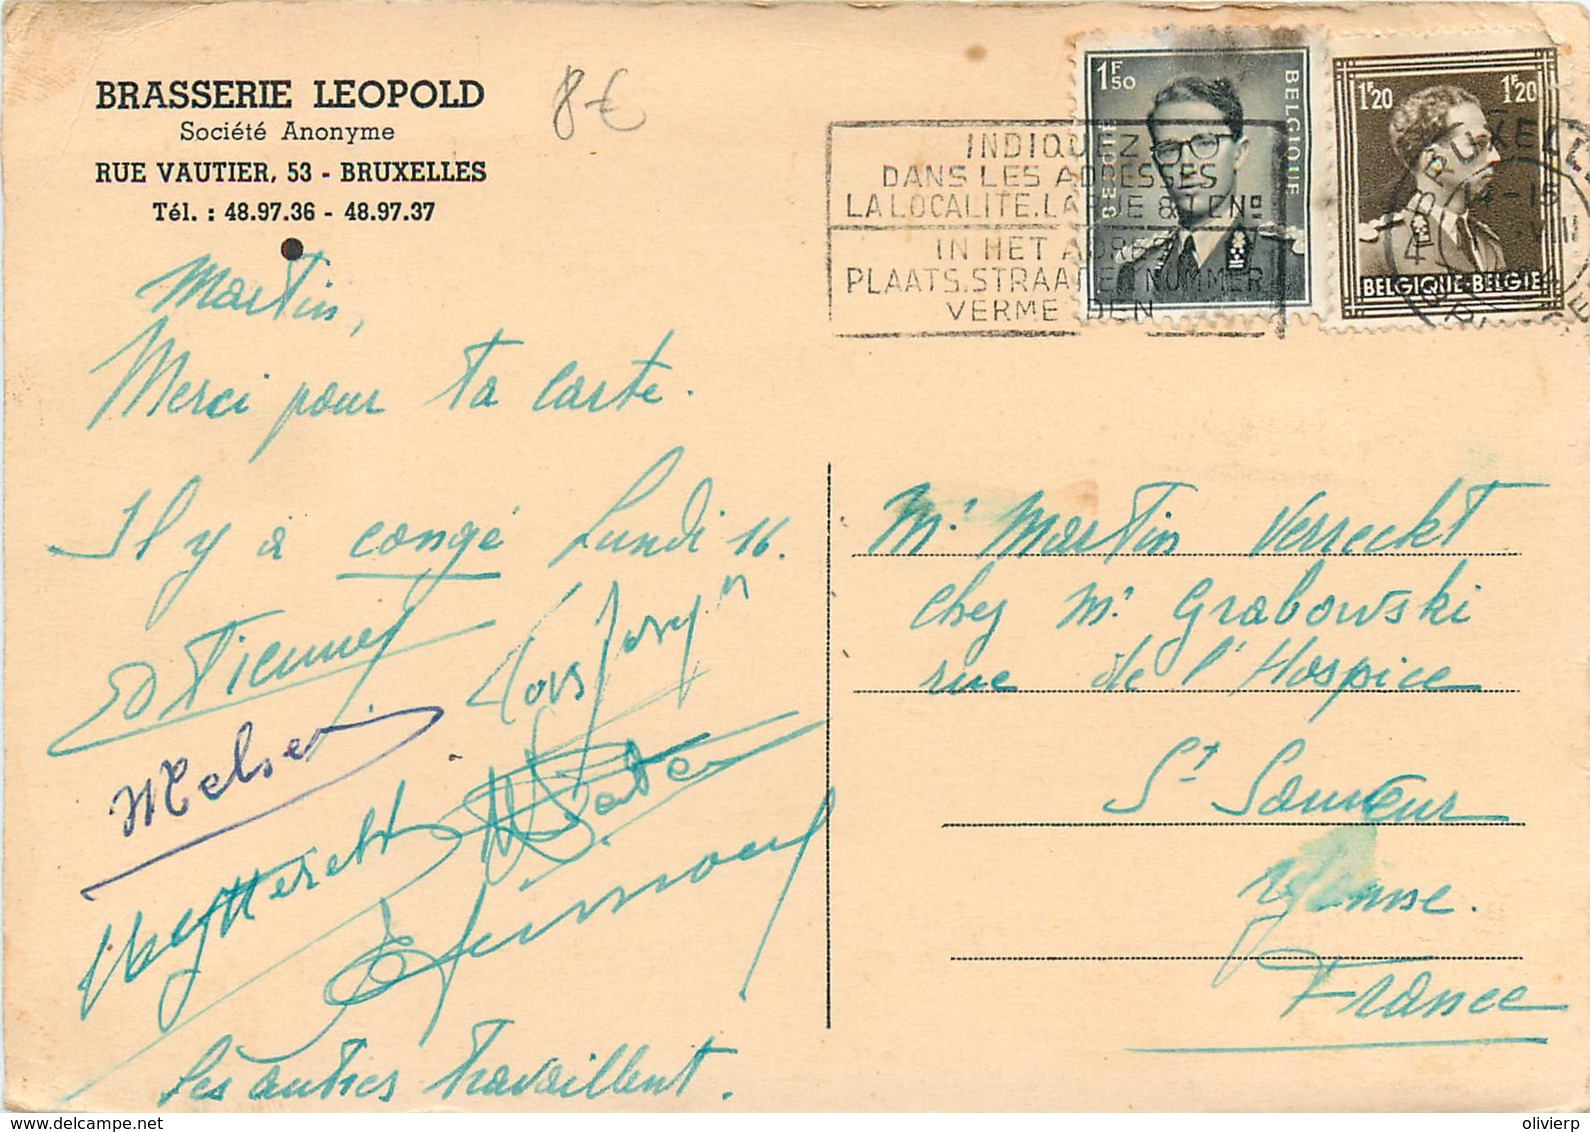 BRASSERIE LEOPOLD
Société Anonyme
RUE VAUTIER, 53 - BRUXELLES
Tél. : 48.97.36 - 48.97.37
8€
1F50
BELGIE
BELGIQUE
1F20
1F20
BELGIQUE-BELGIE
INDIQUEZ
DANS LES ADRESSES
LA LOCALITE.LA RUE & LE No
IN HET ADRES
PLAATS.STRAAT EN NUMMER
VERMELDEN
BRUXELLES
14-15
Martin,
Merci pour ta carte.
Il y a congé Lundi 16.
Melsen
Les autres travaillent.
Mr Martin Verreckt
chez Mr Grabowski
rue de l'Hospice
St Sauveur
Yonne.
France
olivierp